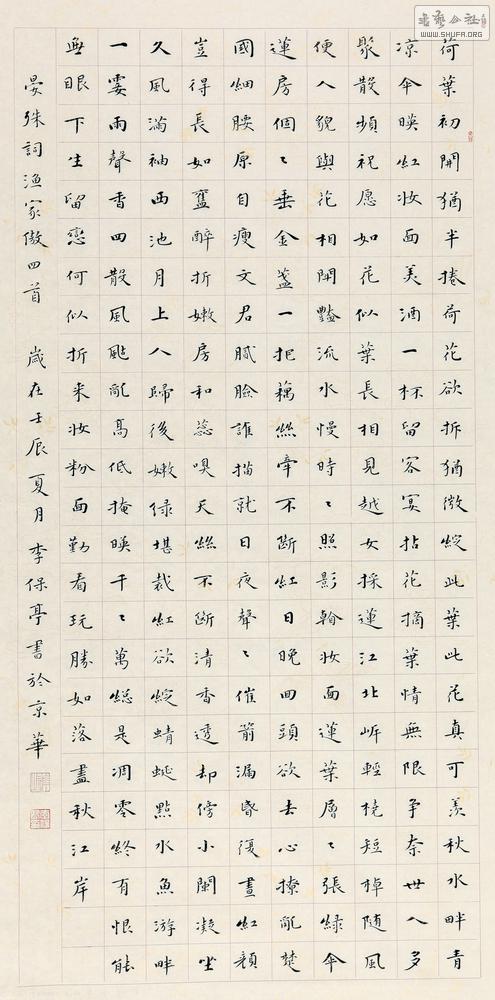 書藝公社
WWW.SHUFA.ORG
荷葉初開猶半捲荷花欲拆猶微綻此葉此花真可羨秋水畔青
凉傘映紅妝面美酒一杯留客宴拈花摘葉情無限争奈世人多
聚散頻祝愿如花似葉長相見越女採蓮江北岍輕橈短棹随風
便人貌與花相鬥豔流水慢時〻照影看妝面蓮葉層〻張緑傘
蓮房個〻垂金盞一把藕絲牽不斷紅日晚回頭欲去心撩亂楚
國細腰原自瘦文君膩臉誰描就日夜聲〻催箭漏昏復晝紅顔
豈得長如舊醉折嫩房和蕊嗅天絲不斷清香透却傍小闌凝坐
久風滿袖西池月上人歸後嫩緑堪裁紅欲綻蜻蜓點水魚游畔
一霎雨聲香四散風颭亂高低掩映千〻萬總是凋零終有恨能
無眼下生留戀何似折来妝粉面勤看玩勝如落盡秋江岸
晏殊詞漁家傲四首 歲在壬辰夏月李保亭書於京華